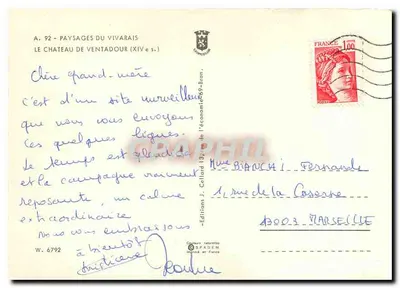 A. 92 - PAYSAGES DU VIVARAIS
LE CHATEAU DE VENTADOUR (XIV e s.)
Chère grand-mère
C'est d'un site merveilleux
que nous vous envoyons
ces quelques lignes.
Le temps est splendide
et la campagne vraiment
reposante, un calme
extraordinaire
nous vous embrassons
à bientôt
Christiane
W. 6792
Editions J. Cellard
de l'économie 69-Bron.
SPADEM
FRANCE
1,00
BIANCHI Fernande
1, rue de la Caserne
13003 MARSEILLE